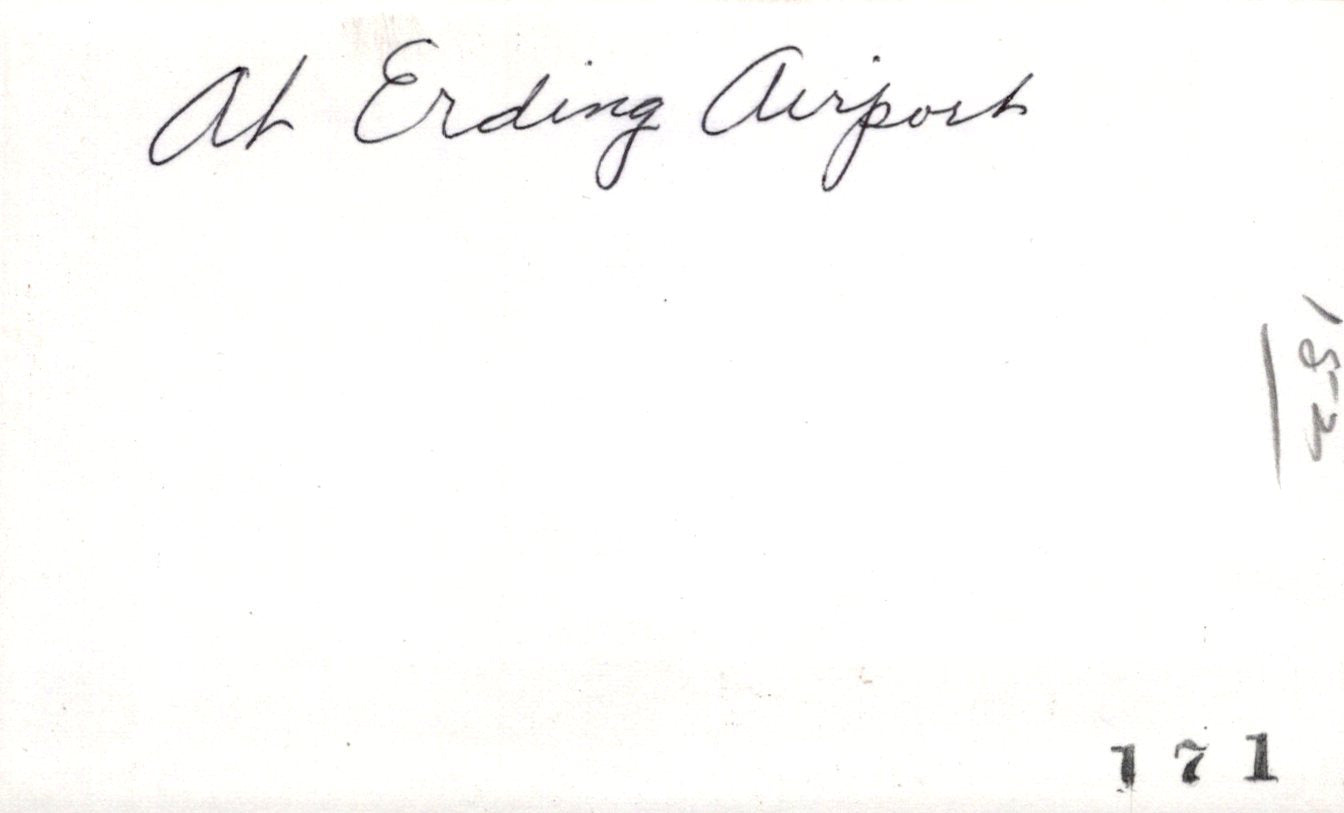 At Erding Airport
152
171